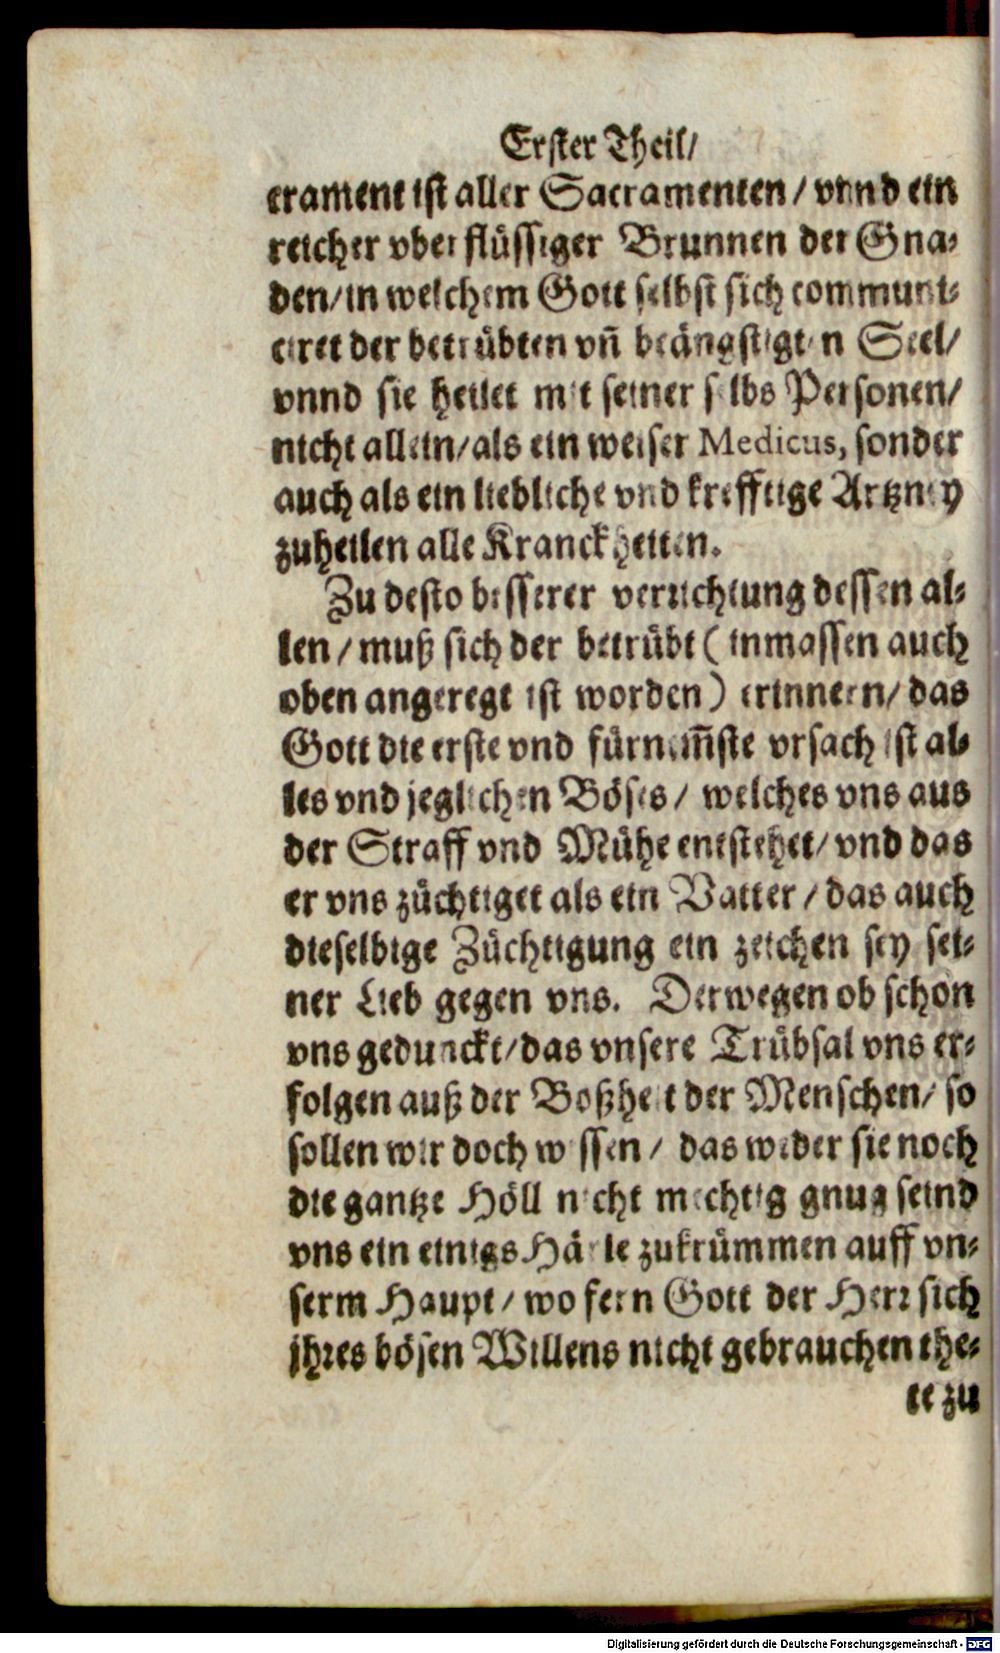 Erster Theil/
crament ist aller Sacramenten / vnnd ein
reicher vberflüssiger Brunnen der Gna-
den/in welchem Gott selbst sich communi-
ciret der betrübten vñ beängstigten Seel/
vnnd sie heilet mit seiner selbs Personen/
nicht allein/als ein weiser Medicus, sonder
auch als ein liebliche vnd krefftige Artzney
zuheilen alle Kranckheiten.
Zu desto besserer verrichtung dessen al-
len / muß sich der betrübt ( inmassen auch
oben angeregt ist worden) erinnern/ das
Gott die erste vnd fürnem̄ste vrsach ist al-
les vnd jeglichen Böses / welches vns aus
der Straff vnd Mühe entstehet/ vnd das
er vns züchtiget als ein Vatter / das auch
dieselbige Züchtigung ein zeichen sey sei-
ner Lieb gegen vns. Derwegen ob schon
vns gedunckt/das vnsere Trübsal vns er-
folgen auß der Boßheit der Menschen/ so
sollen wir doch wissen / das weder sie noch
die gantze Höll nicht mechtig gnug seind
vns ein einigs Härle zukrümmen auff vn-
serm Haupt / wo fern Gott der Herr sich
jhres bösen Willens nicht gebrauchen the-
te zu
Digitalisierung gefördert durch die Deutsche Forschungsgemeinschaft - DFG